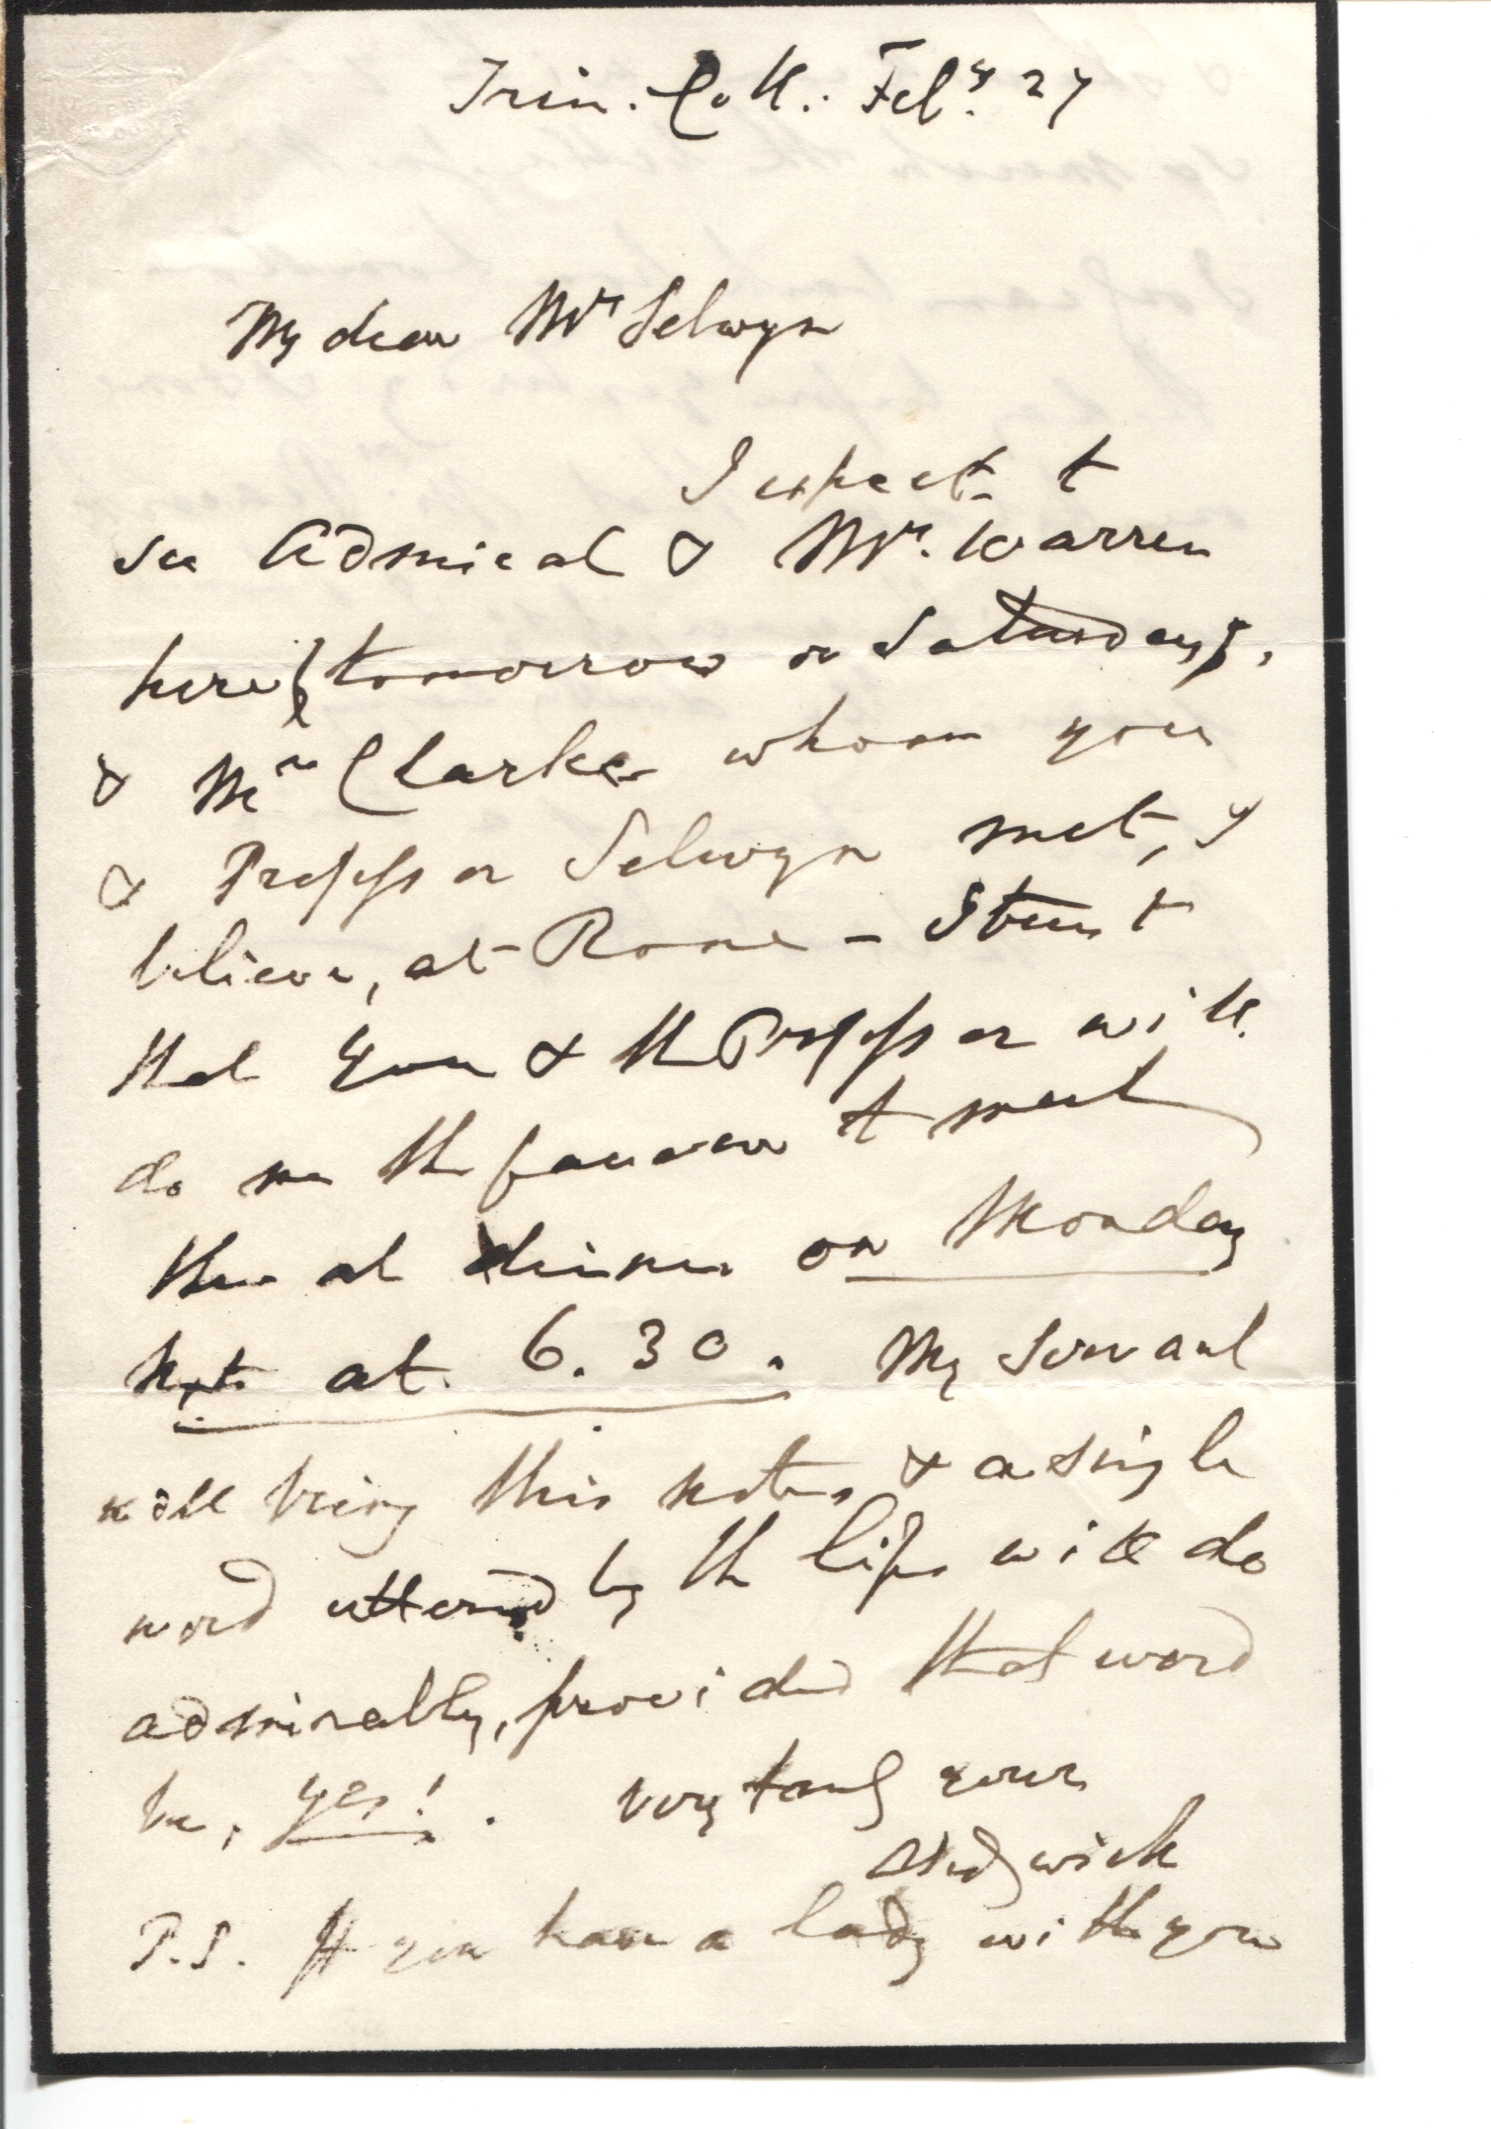 Trin. Coll. Feby. 27
My dear Mrs Selwyn
I expect to
see Admiral & Mrs. Warren
here (tomorrow or Saturday),
& Mrs Clarke whom you
& Professor Selwyn met, I
believe, at Rome – I trust
that you & the Professor will
do me the favour to meet
them at dinner on Monday
next at 6.30. My servant
will bring this note, & a single
word uttered by the lips will do
admirably, provided that word
be, yes!. Very truly yours
A Sedgwick
P.S. If you have a lady with you